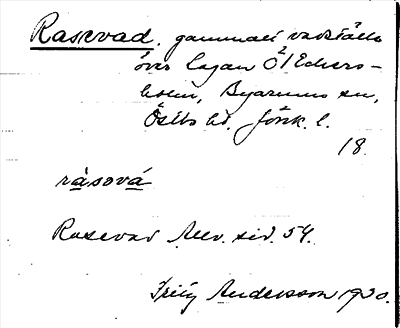 Rasevad. gammalt vadställe
över Lagan Ö² Eckers-
holm, Byarums sn,
Östbo hd. Jönk. l.
18.
råsová
Rasevad Allv. sid. 54.
Fritz Andersson 1930.